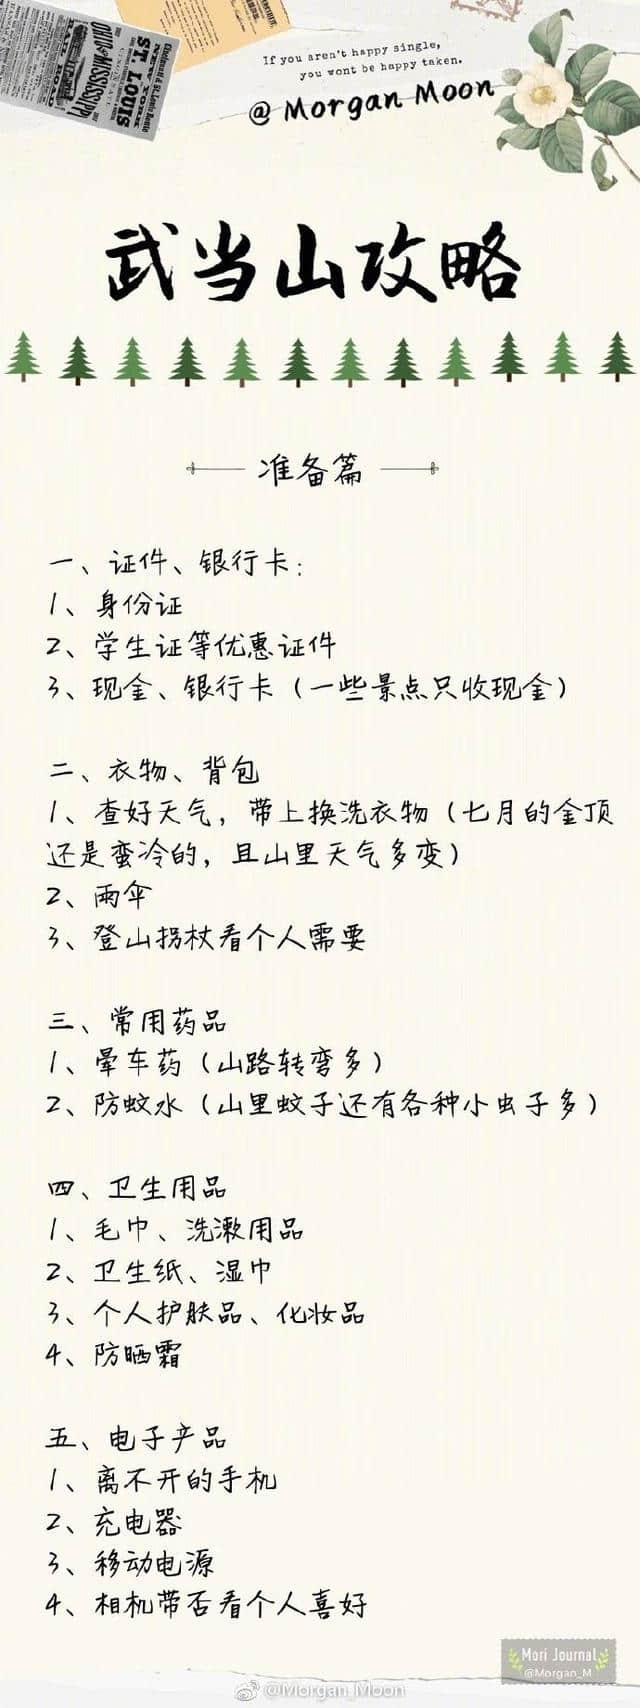 NEW YORK
ST. LOUIS
OHIO & MISSISSIPPI
RAIL ROAD
If you aren't happy single,
you wont be happy taken.
@ Morgan Moon
武当山攻略
准备篇
一、证件、银行卡:
1、身份证
2、学生证等优惠证件
3、现金、银行卡(一些景点只收现金)
二、衣物、背包
1、查好天气，带上换洗衣物(七月的金顶
还是蛮冷的，且山里天气多变)
2、雨伞
3、登山拐杖看个人需要
三、常用药品
1、晕车药(山路转弯多)
2、防蚊水(山里蚊子还有各种小虫子多)
四、卫生用品
1、毛巾、洗漱用品
2、卫生纸、湿巾
3、个人护肤品、化妆品
4、防晒霜
五、电子产品
1、离不开的手机
2、充电器
3、移动电源
4、相机带否看个人喜好
Mori Journal
@Morgan_M
@Morgan_Moon